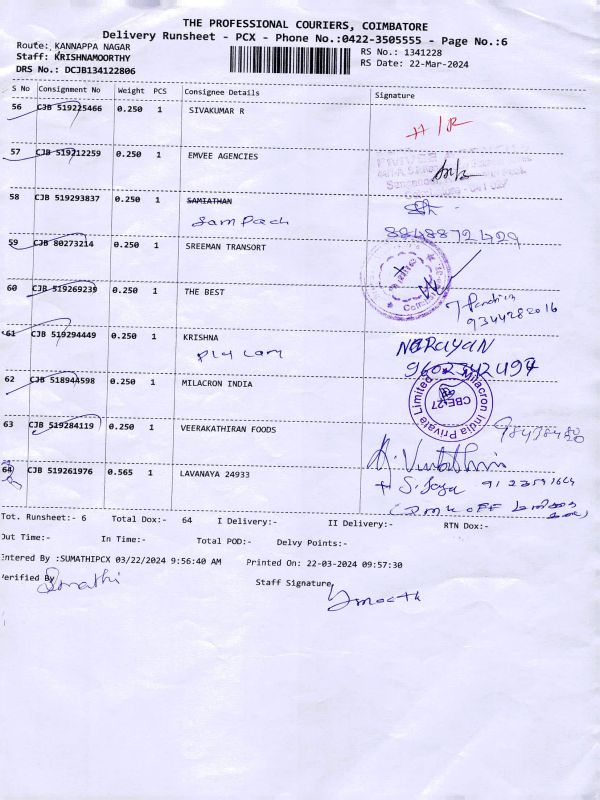 THE PROFESSIONAL COURIERS, COIMBATORE
Delivery Runsheet - PCX - Phone No.:0422-3505555 - Page No.:6
Route: KANNAPPA NAGAR
Staff: KRISHNAMOORTHY
DRS No.: DCJB134122806
RS No.: 1341228
RS Date: 22-Mar-2024
S No Consignment No Weight PCS Consignee Details Signature
56 CJB 519225466 0.250 1 SIVAKUMAR R
57 CJB 519212259 0.250 1 EMVEE AGENCIES
58 CJB 519293837 0.250 1 SAMIATHAN
8848872429
59 CJB 80273214 0.250 1 SREEMAN TRANSORT
60 CJB 519269239 0.250 1 THE BEST
9344282016
61 CJB 519294449 0.250 1 KRISHNA NARAYAN
62 CJB 518944598 0.250 1 MILACRON INDIA
Milacron India Private Limited
CBE-27
63 CJB 519284119 0.250 1 VEERAKATHIRAN FOODS
64 CJB 519261976 0.565 1 LAVANAYA 24933
Tot. Runsheet:- 6 Total Dox:- 64 I Delivery:- II Delivery:- RTN Dox:-
Out Time:- In Time:- Total POD:- Delvy Points:-
Entered By :SUMATHIPCX 03/22/2024 9:56:40 AM Printed On: 22-03-2024 09:57:30
Verified By Sumathi Staff Signature